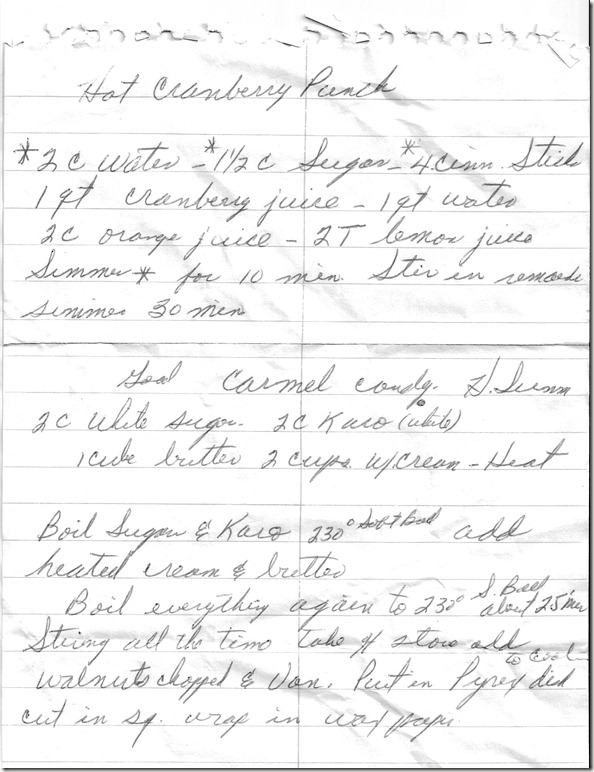 Hot Cranberry Punch
*2 C Water - *1 1/2 C Sugar - *4 Cinn. Stick
1 qt cranberry juice - 1 qt water
2C orange juice - 2T lemon juice
Simmer * for 10 min. Stir in
simmer 30 min
Good Carmel Candy. H.
2C White Sugar. 2C Karo (white)
1 cube butter 2 cups W. Cream - Heat
Boil Sugar & Karo 230° Soft Ball add
heated cream & butter
Boil everything again to 230° S. Ball about 25 min
Stiring all the time take off stove add
walnuts chopped & Van. Put in Pyrex dish to cool
cut in sq. wrap in wax paper.